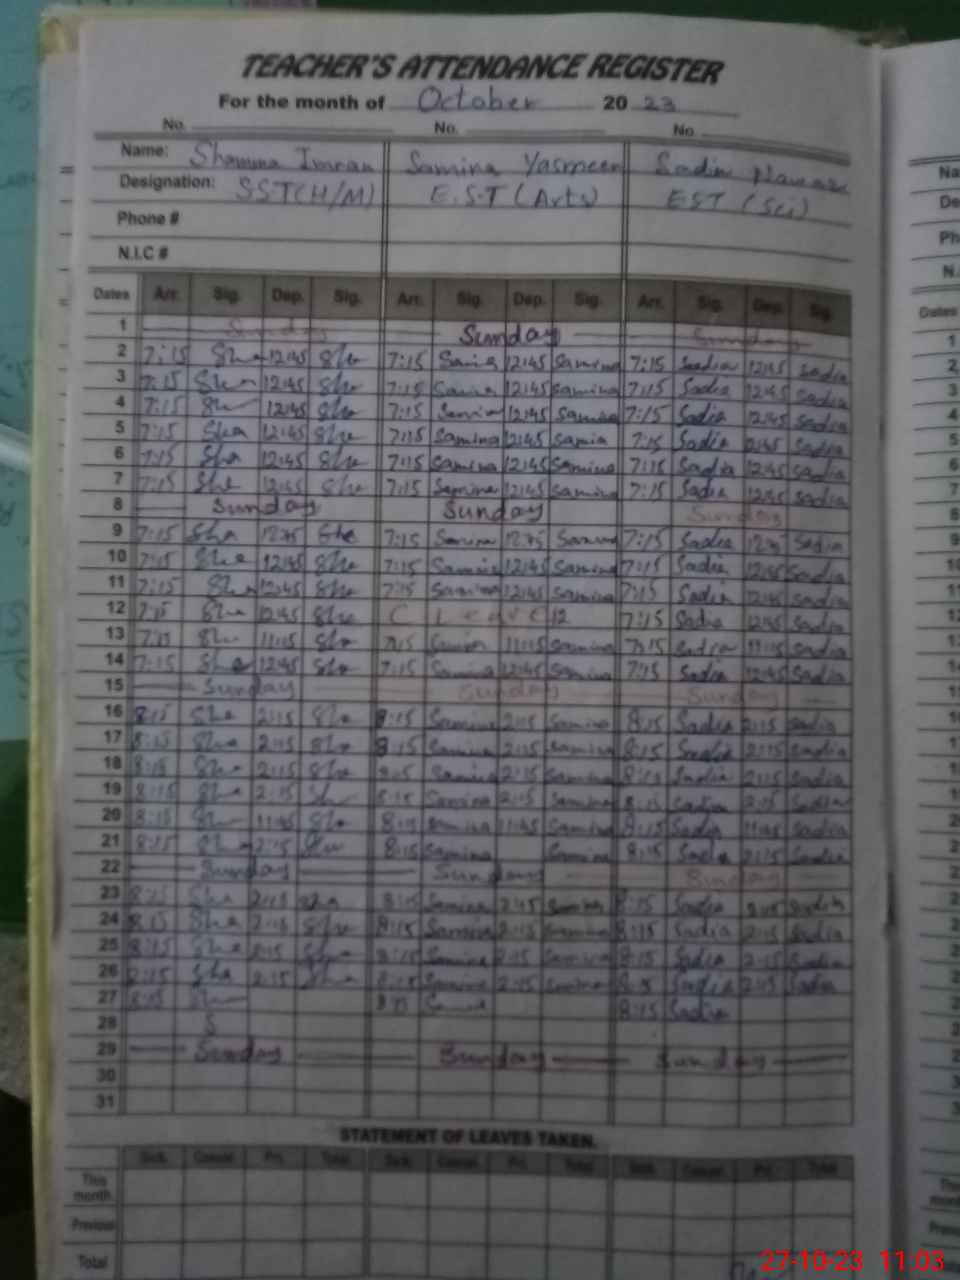 TEACHER'S ATTENDANCE REGISTER
For the month of October 20 23
No. No. No.
Name: Shamma Imran Samina Yasmeen Sadia Nawaz
Designation: SST(H/M) E.S.T (Arts) EST (Sci)
Phone #
N.I.C #
Dates Arr. Sig. Dep. Sig. Arr. Sig. Dep. Sig. Arr. Sig. Dep. Sig.
1 Sunday Sunday Sunday
2 7:15 Sha 12:45 Sha 7:15 Samina 12:45 Samina 7:15 Sadia 12:45 Sadia
3 7:15 Sha 12:45 Sha 7:15 Samina 12:45 Samina 7:15 Sadia 12:45 Sadia
4 7:15 Sh 12:45 Sha 7:15 Samina 12:45 Samina 7:15 Sadia 12:45 Sadia
5 7:15 Sha 12:45 Sha 7:15 Samina 12:45 Samia 7:15 Sadia 12:45 Sadia
6 7:15 Sha 12:45 Sha 7:15 Samina 12:45 Samina 7:15 Sadia 12:45 Sadia
7 7:15 Sha 12:45 Sha 7:15 Samina 12:45 Samina 7:15 Sadia 12:45 Sadia
8 Sunday Sunday Sunday
9 7:15 Sha Sha 7:15 Samina Samina 7:15 Sadia Sadia
10 7:15 Sha 12:45 Sha 7:15 Samina 12:45 Samina 7:15 Sadia 12:45 Sadia
11 7:15 Sha 12:45 Sha 7:15 Samina 12:45 Samina 7:15 Sadia 12:45 Sadia
12 7:15 Sha 12:45 Sha C Leave 12 7:15 Sadia 12:45 Sadia
13 7:15 Sh 11:15 Sha 7:15 Samina 11:15 Samina 7:15 Sadia 11:15 Sadia
14 7:15 Sha 12:45 Sha 7:15 Samina 12:45 Samina 7:15 Sadia 12:45 Sadia
15 Sunday Sunday Sunday
16 8:15 Sha 2:15 Sha 8:15 Samina 2:15 Samina 8:15 Sadia 2:15 Sadia
17 8:15 Sha 2:15 Sha 8:15 Samina 2:15 Samina 8:15 Sadia 2:15 Sadia
18 8:15 Sha 2:15 Sha 8:15 Samina 2:15 Samina 8:15 Sadia 2:15 Sadia
19 8:15 Sha 2:15 Sh 8:15 Samina 2:15 Samina 8:15 Sadia 2:15 Sadia
20 8:15 Sh 11:45 Sha 8:15 Samina 11:45 Samina 8:15 Sadia 11:45 Sadia
21 8:15 Sha 2:15 Sha 8:15 Samina Samina 8:15 Sadia 2:15 Sadia
22 Sunday Sunday Sunday
23 8:15 Sha 2:15 Sha 8:15 Samina 2:15 Samina 8:15 Sadia 2:15 Sadia
24 8:15 Sha 2:15 Sha 8:15 Samina 2:15 Samina 8:15 Sadia 2:15 Sadia
25 8:15 Sha 2:15 Sha 8:15 Samina 2:15 Samina 8:15 Sadia 2:15 Sadia
26 8:15 Sha 2:15 Sha 8:15 Samina 2:15 Samina 8:15 Sadia 2:15 Sadia
27 8:15 Sha 8:15 8:15 Sadia
28 S
29 Sunday Sunday Sunday
30
31
STATEMENT OF LEAVES TAKEN.
Sick. Casual. Pri. Total Sick. Casual. Pri. Total Sick. Casual. Pri. Total
This month.
Previous
Total
27-10-23 11:03